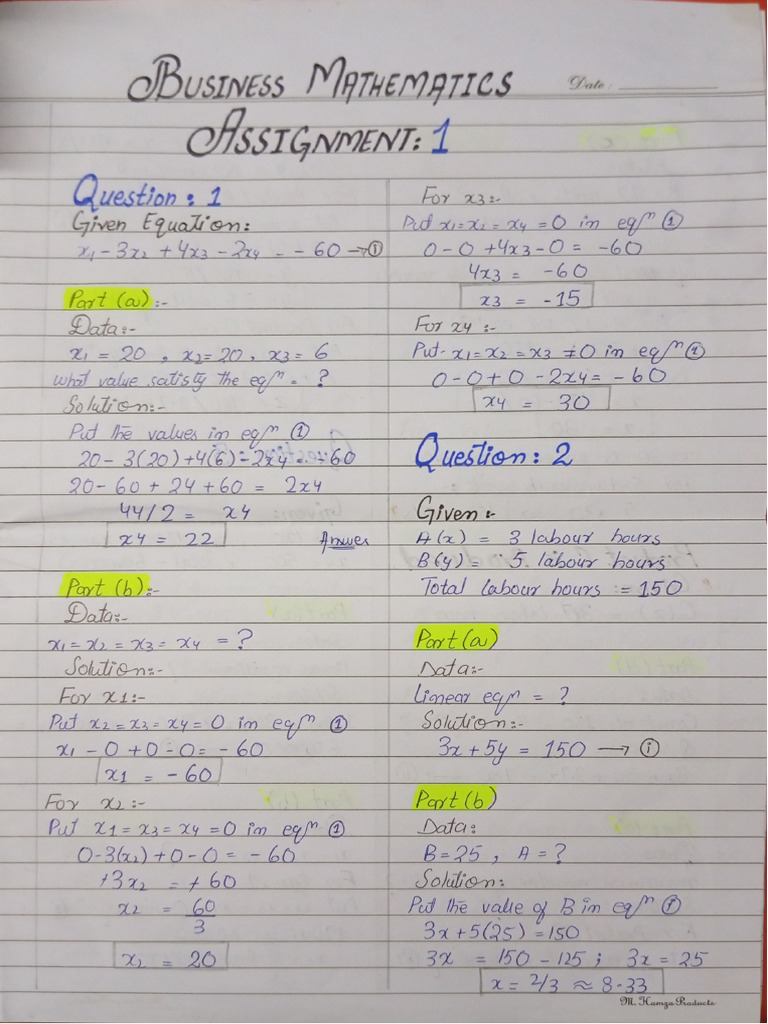 BUSINESS MATHEMATICS
Date:
ASSIGNMENT: 1
Question: 1
Given Equation:
x1 - 3x2 + 4x3 - 2x4 = - 60 → ①
Part (a):-
Data:-
x1 = 20 , x2 = 20 , x3 = 6
what value satisty the eqⁿ = ?
Solution:-
Put the values in eqⁿ ①
20 - 3(20) + 4(6) - 2x4 = - 60
20 - 60 + 24 + 60 = 2x4
44/2 = x4
x4 = 22 Answer
Part (b):-
Data:-
x1 = x2 = x3 = x4 = ?
Solution:-
For x1:-
Put x2 = x3 = x4 = 0 in eqⁿ ①
x1 - 0 + 0 - 0 = - 60
x1 = - 60
For x2:-
Put x1 = x3 = x4 = 0 in eqⁿ ①
0 - 3(x2) + 0 - 0 = - 60
+3x2 = + 60
x2 = 60
3
x2 = 20
For x3:-
Put x1 = x2 = x4 = 0 in eqⁿ ①
0 - 0 + 4x3 - 0 = - 60
4x3 = - 60
x3 = - 15
For x4 :-
Put x1 = x2 = x3 = 0 in eqⁿ ①
0 - 0 + 0 - 2x4 = - 60
x4 = 30
Question: 2
Given:-
A(x) = 3 labour hours
B(y) = 5 labour hours
Total labour hours := 150
Part (a)
Data:-
Linear eqⁿ = ?
Solution:-
3x + 5y = 150 → ①
Part (b)
Data:
B = 25 , A = ?
Solution:
Put the value of B in eqⁿ ①
3x + 5(25) = 150
3x = 150 - 125 ; 3x = 25
x = 2/3 ≈ 8.33
M. Hamza Products